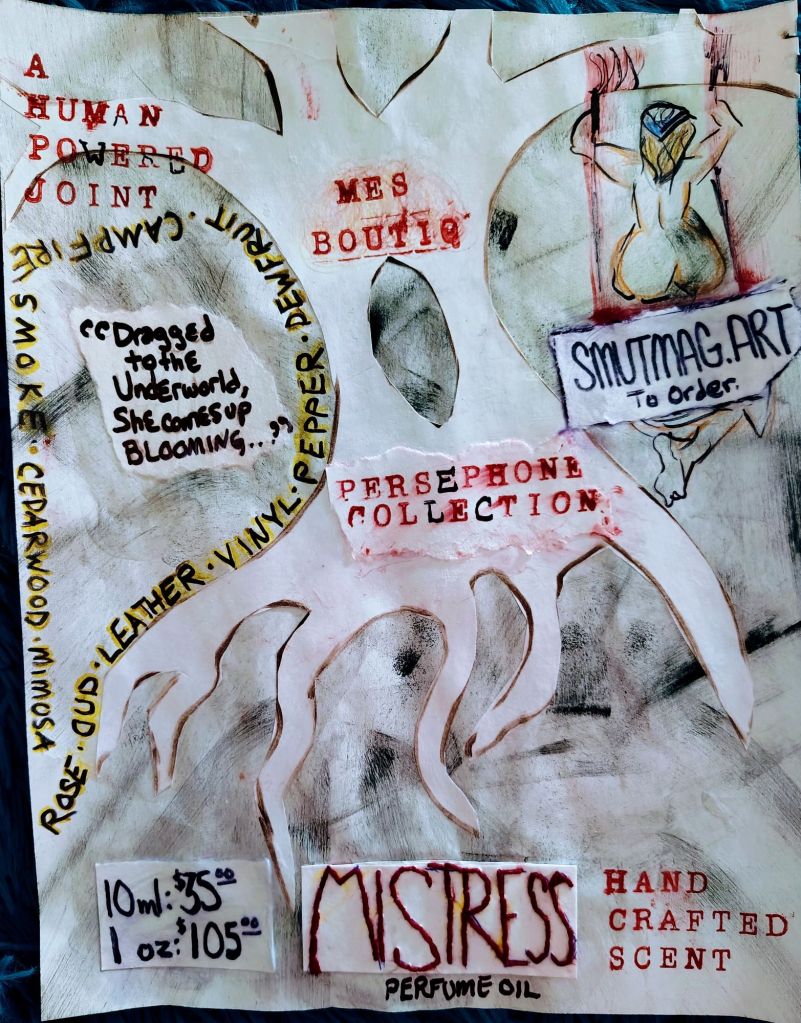 A
HUMAN
POWERED
JOINT
MES
BOUTIQ
ROSE · OUD · LEATHER · VINYL · PEPPER · DEWFRUIT · CAMPFIRE SMOKE · CEDARWOOD · MIMOSA
"Dragged
to the
Underworld,
She comes up
BLOOMING..."
SMUTMAG.ART
To Order.
PERSEPHONE
COLLECTION
10ml: $35.00
1 oz: $105.00
MISTRESS
PERFUME OIL
HAND
CRAFTED
SCENT